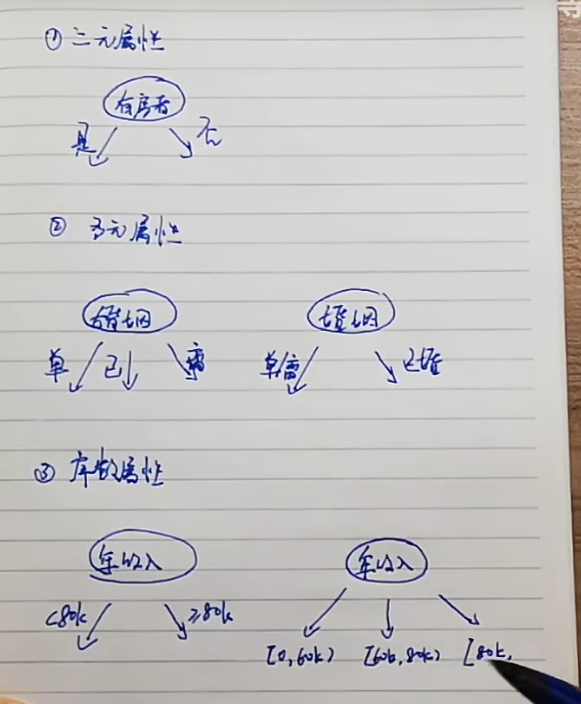 ① 二元属性
有房者
是 否
② 多元属性
婚姻 婚姻
单 已 离 单/离 已婚
③ 序数属性
年收入 年收入
<80k ≥80k
[0,60k) [60k,80k) [80k,